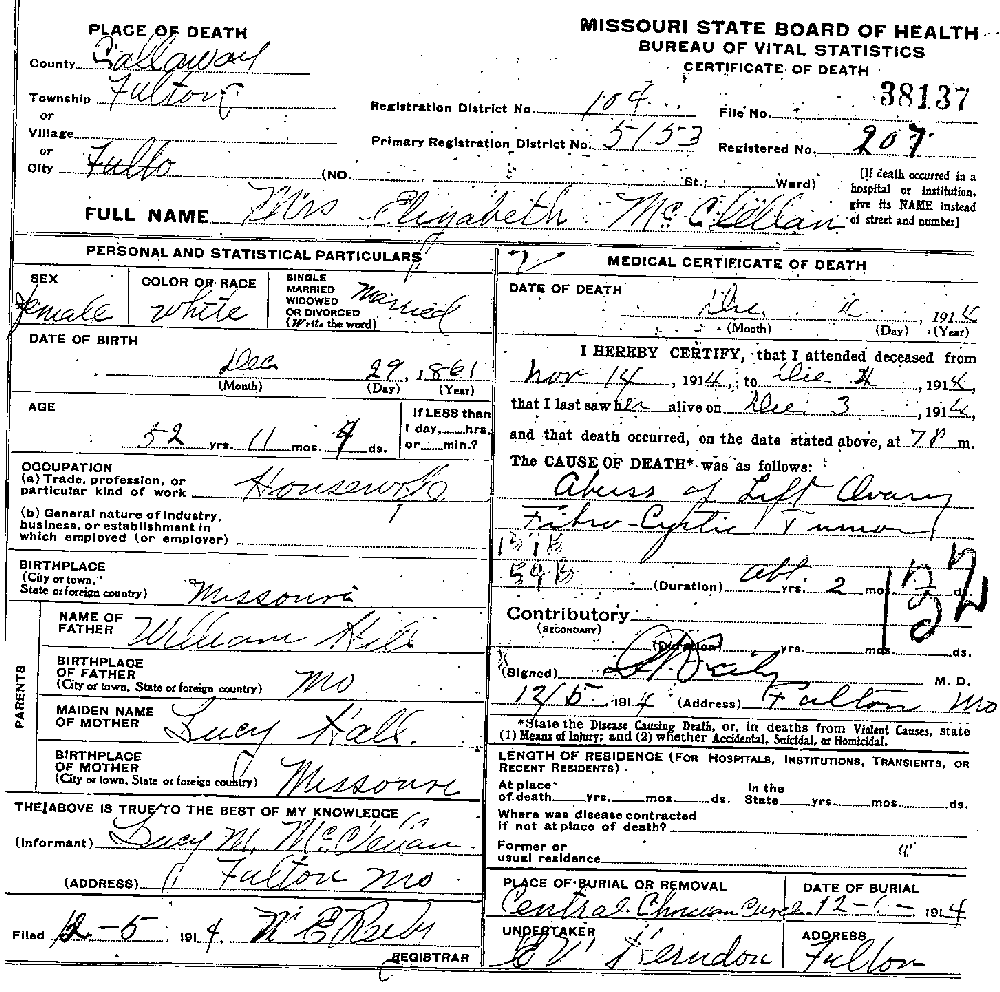 PLACE OF DEATH
County Callaway
Township Fulton
or
Village
or
City Fulto (NO. St.; Ward)
MISSOURI STATE BOARD OF HEALTH
BUREAU OF VITAL STATISTICS
CERTIFICATE OF DEATH
Registration District No. 104 File No. 38137
Primary Registration District No. 5153 Registered No. 207
[If death occurred in a
hospital or institution,
give its NAME instead
of street and number]
FULL NAME Mrs Elizabeth McClellan
PERSONAL AND STATISTICAL PARTICULARS
SEX
female
COLOR OR RACE
White
SINGLE
MARRIED
WIDOWED
OR DIVORCED
(Write the word)
Married
DATE OF BIRTH
Dec 29, 1861
(Month) (Day) (Year)
AGE
52 yrs. 11 mos. ds.
If LESS than
1 day, hrs.
or min.?
OCCUPATION
(a) Trade, profession, or
particular kind of work Housewife
(b) General nature of industry,
business, or establishment in
which employed (or employer)
BIRTHPLACE
(City or town,
State or foreign country) Missouri
PARENTS
NAME OF
FATHER William
BIRTHPLACE
OF FATHER
(City or town, State or foreign country) Mo
MAIDEN NAME
OF MOTHER Lucy Hall.
BIRTHPLACE
OF MOTHER
(City or town, State or foreign country) Missouri
THE ABOVE IS TRUE TO THE BEST OF MY KNOWLEDGE
(Informant) Lucy M. McClellan
(ADDRESS) Fulton Mo
Filed 12-5 1914
REGISTRAR
MEDICAL CERTIFICATE OF DEATH
DATE OF DEATH
Dec 4 1914
(Month) (Day) (Year)
I HEREBY CERTIFY, that I attended deceased from
Nov 14, 1914, to Dec 4, 1914,
that I last saw her alive on Dec 3, 1914,
and that death occurred, on the date stated above, at m.
The CAUSE OF DEATH* was as follows:
Abcess of Left Ovary
Fibro-Cystic Tumor
131B
(Duration) abt. yrs. 2 mos. ds.
132
Contributory
(SECONDARY)
(Duration) yrs. mos. ds.
(Signed) M. D.
12/5 1914 (Address) Fulton Mo
*State the Disease Causing Death, or, in deaths from Violent Causes, state
(1) Means of Injury; and (2) whether Accidental, Suicidal, or Homicidal.
LENGTH OF RESIDENCE (FOR HOSPITALS, INSTITUTIONS, TRANSIENTS, OR
RECENT RESIDENTS)
At place
of death yrs. mos. ds.
In the
State yrs. mos. ds.
Where was disease contracted
if not at place of death?
Former or
usual residence
PLACE OF BURIAL OR REMOVAL
Central Christian
DATE OF BURIAL
1914
UNDERTAKER
Herndon
ADDRESS
Fulton